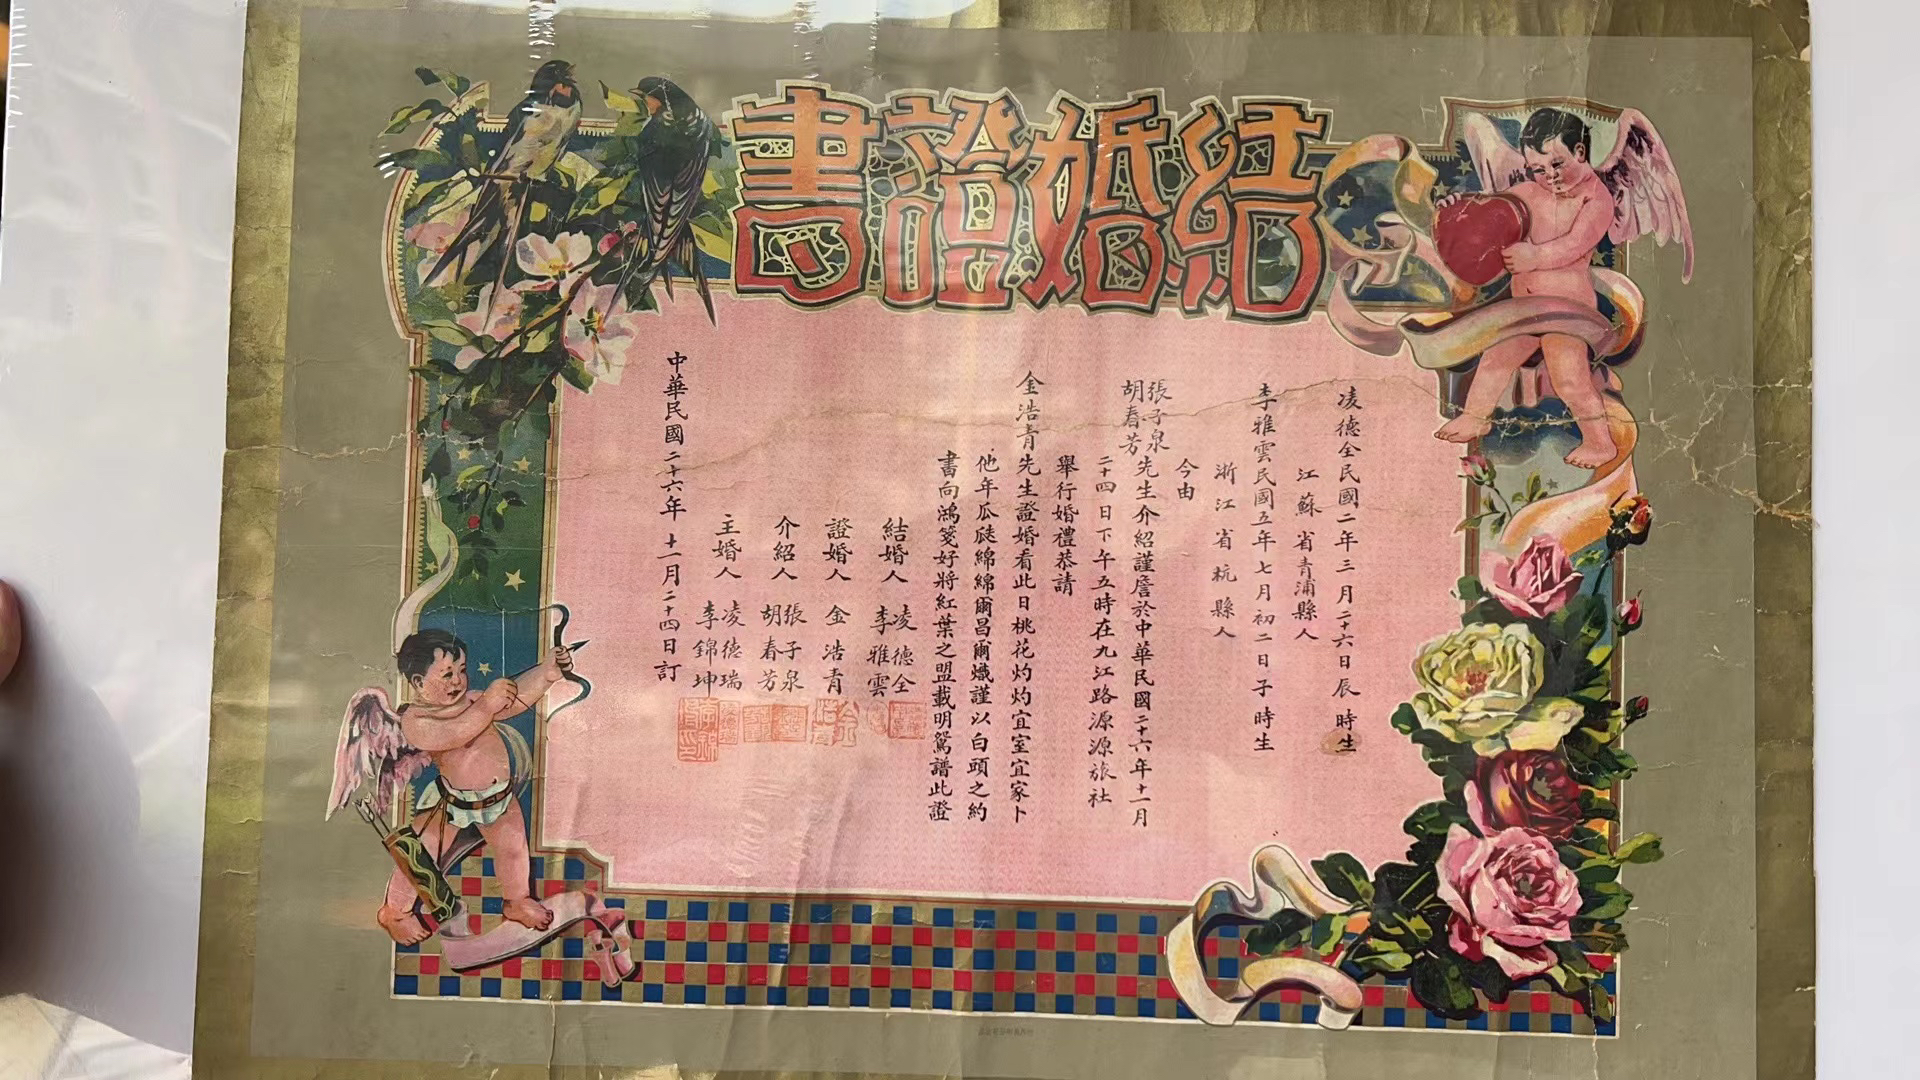 結婚證書
凌德全民國二年三月二十六日辰時生
江蘇省青浦縣人
李雅雲民國五年七月初二日子時生
浙江省杭縣人
今由
張子泉
胡春芳
先生介紹謹詹於中華民國二十六年十一月
二十四日下午五時在九江路源源旅社
舉行婚禮恭請
金浩青先生證婚看此日桃花灼灼宜室宜家卜
他年瓜瓞綿綿爾昌爾熾謹以白頭之約
書向鴻箋好將紅葉之盟載明鴛譜此證
結婚人 凌德全
李雅雲
證婚人 金浩青
介紹人 張子泉
胡春芳
主婚人 凌德瑞
李錦坤
中華民國二十六年十一月二十四日訂